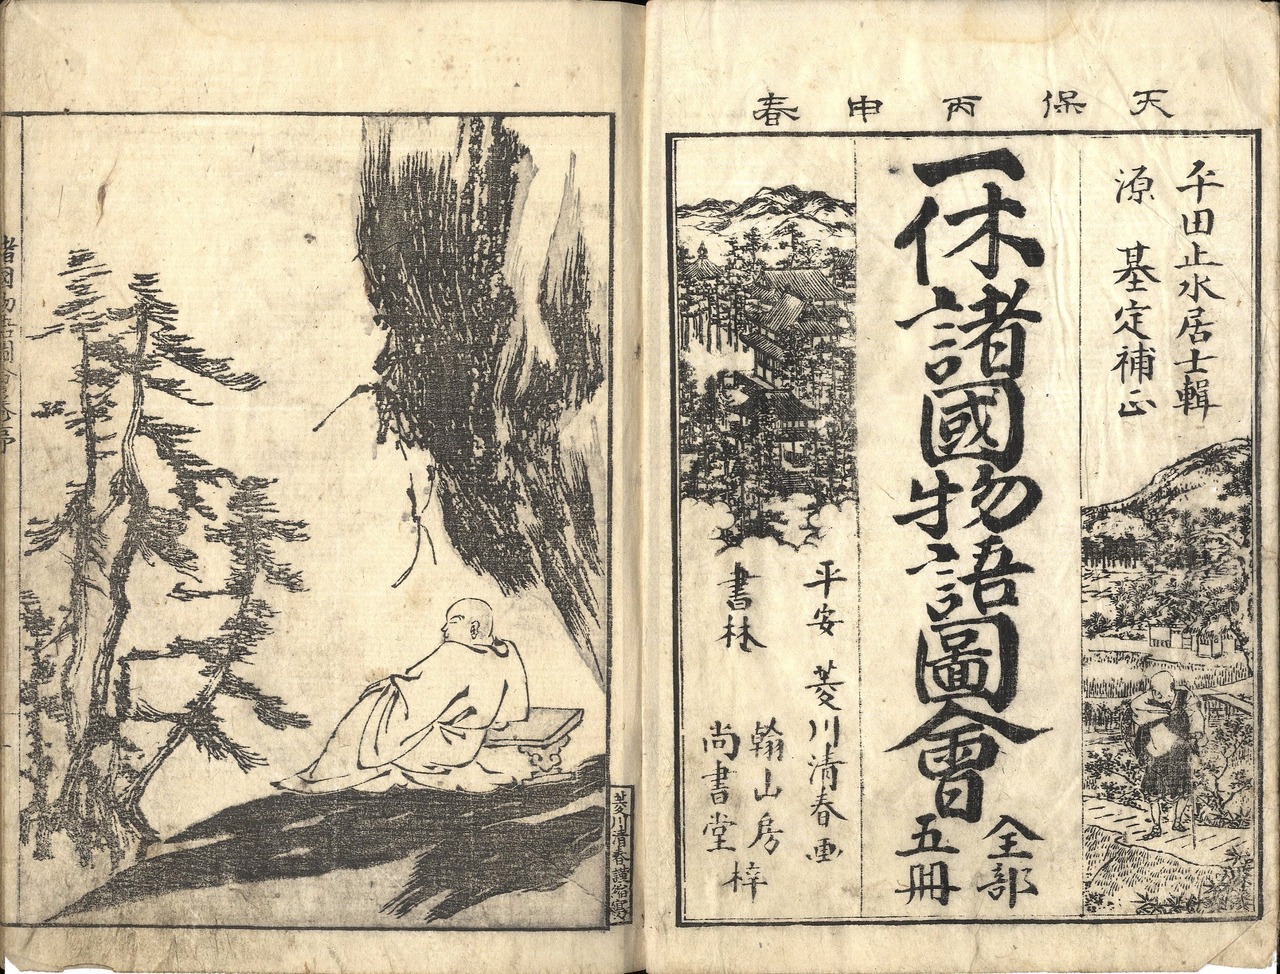 天保丙申春
平田止水居士輯
源 基定補正
一休諸國物語圖會
全部
五冊
平安 菱川清春画
書林
翰山房
尚書堂
梓
菱川清春謹縮寫
諸國物語圖會
序